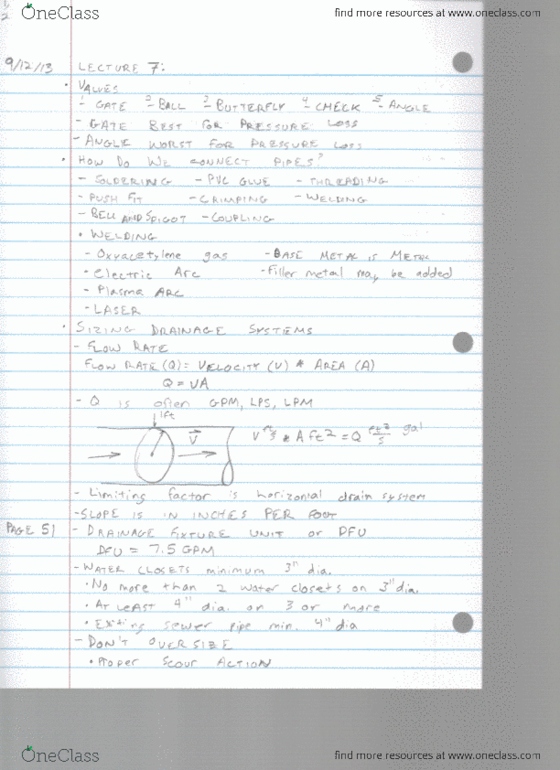 OneClass
find more resources at www.oneclass.com
9/12/13 LECTURE 7:
• VALVES
1- GATE 2- BALL 3- BUTTERFLY 4- CHECK 5- ANGLE
- GATE BEST FOR PRESSURE LOSS
- ANGLE WORST FOR PRESSURE LOSS
• HOW DO WE CONNECT PIPES?
- SOLDERING - PVC GLUE - THREADING
- PUSH FIT - CRIMPING - WELDING
- BELL AND SPIGOT - COUPLING
• WELDING
- Oxyacetylene gas - BASE METAL IS METAL
• Electric Arc - Filler metal may be added
- Plasma ARC
- LASER
• SIZING DRAINAGE SYSTEMS
- FLOW RATE
FLOW RATE (Q) = VELOCITY (V) * AREA (A)
Q = VA
- Q is often GPM, LPS, LPM
1ft
V
V ft/s * A ft2 = Q ft3/s gal
- Limiting factor is horizontal drain system
- SLOPE IS IN INCHES PER FOOT
PAGE 51 - DRAINAGE FIXTURE UNIT or DFU
DFU = 7.5 GPM
- WATER CLOSETS minimum 3" dia.
• No more than 2 water closets on 3" dia.
• AT LEAST 4" dia. on 3 or more
• Exiting sewer pipe min. 4" dia
- DON'T OVERSIZE
• Proper SCOUR ACTION
OneClass
find more resources at www.oneclass.com